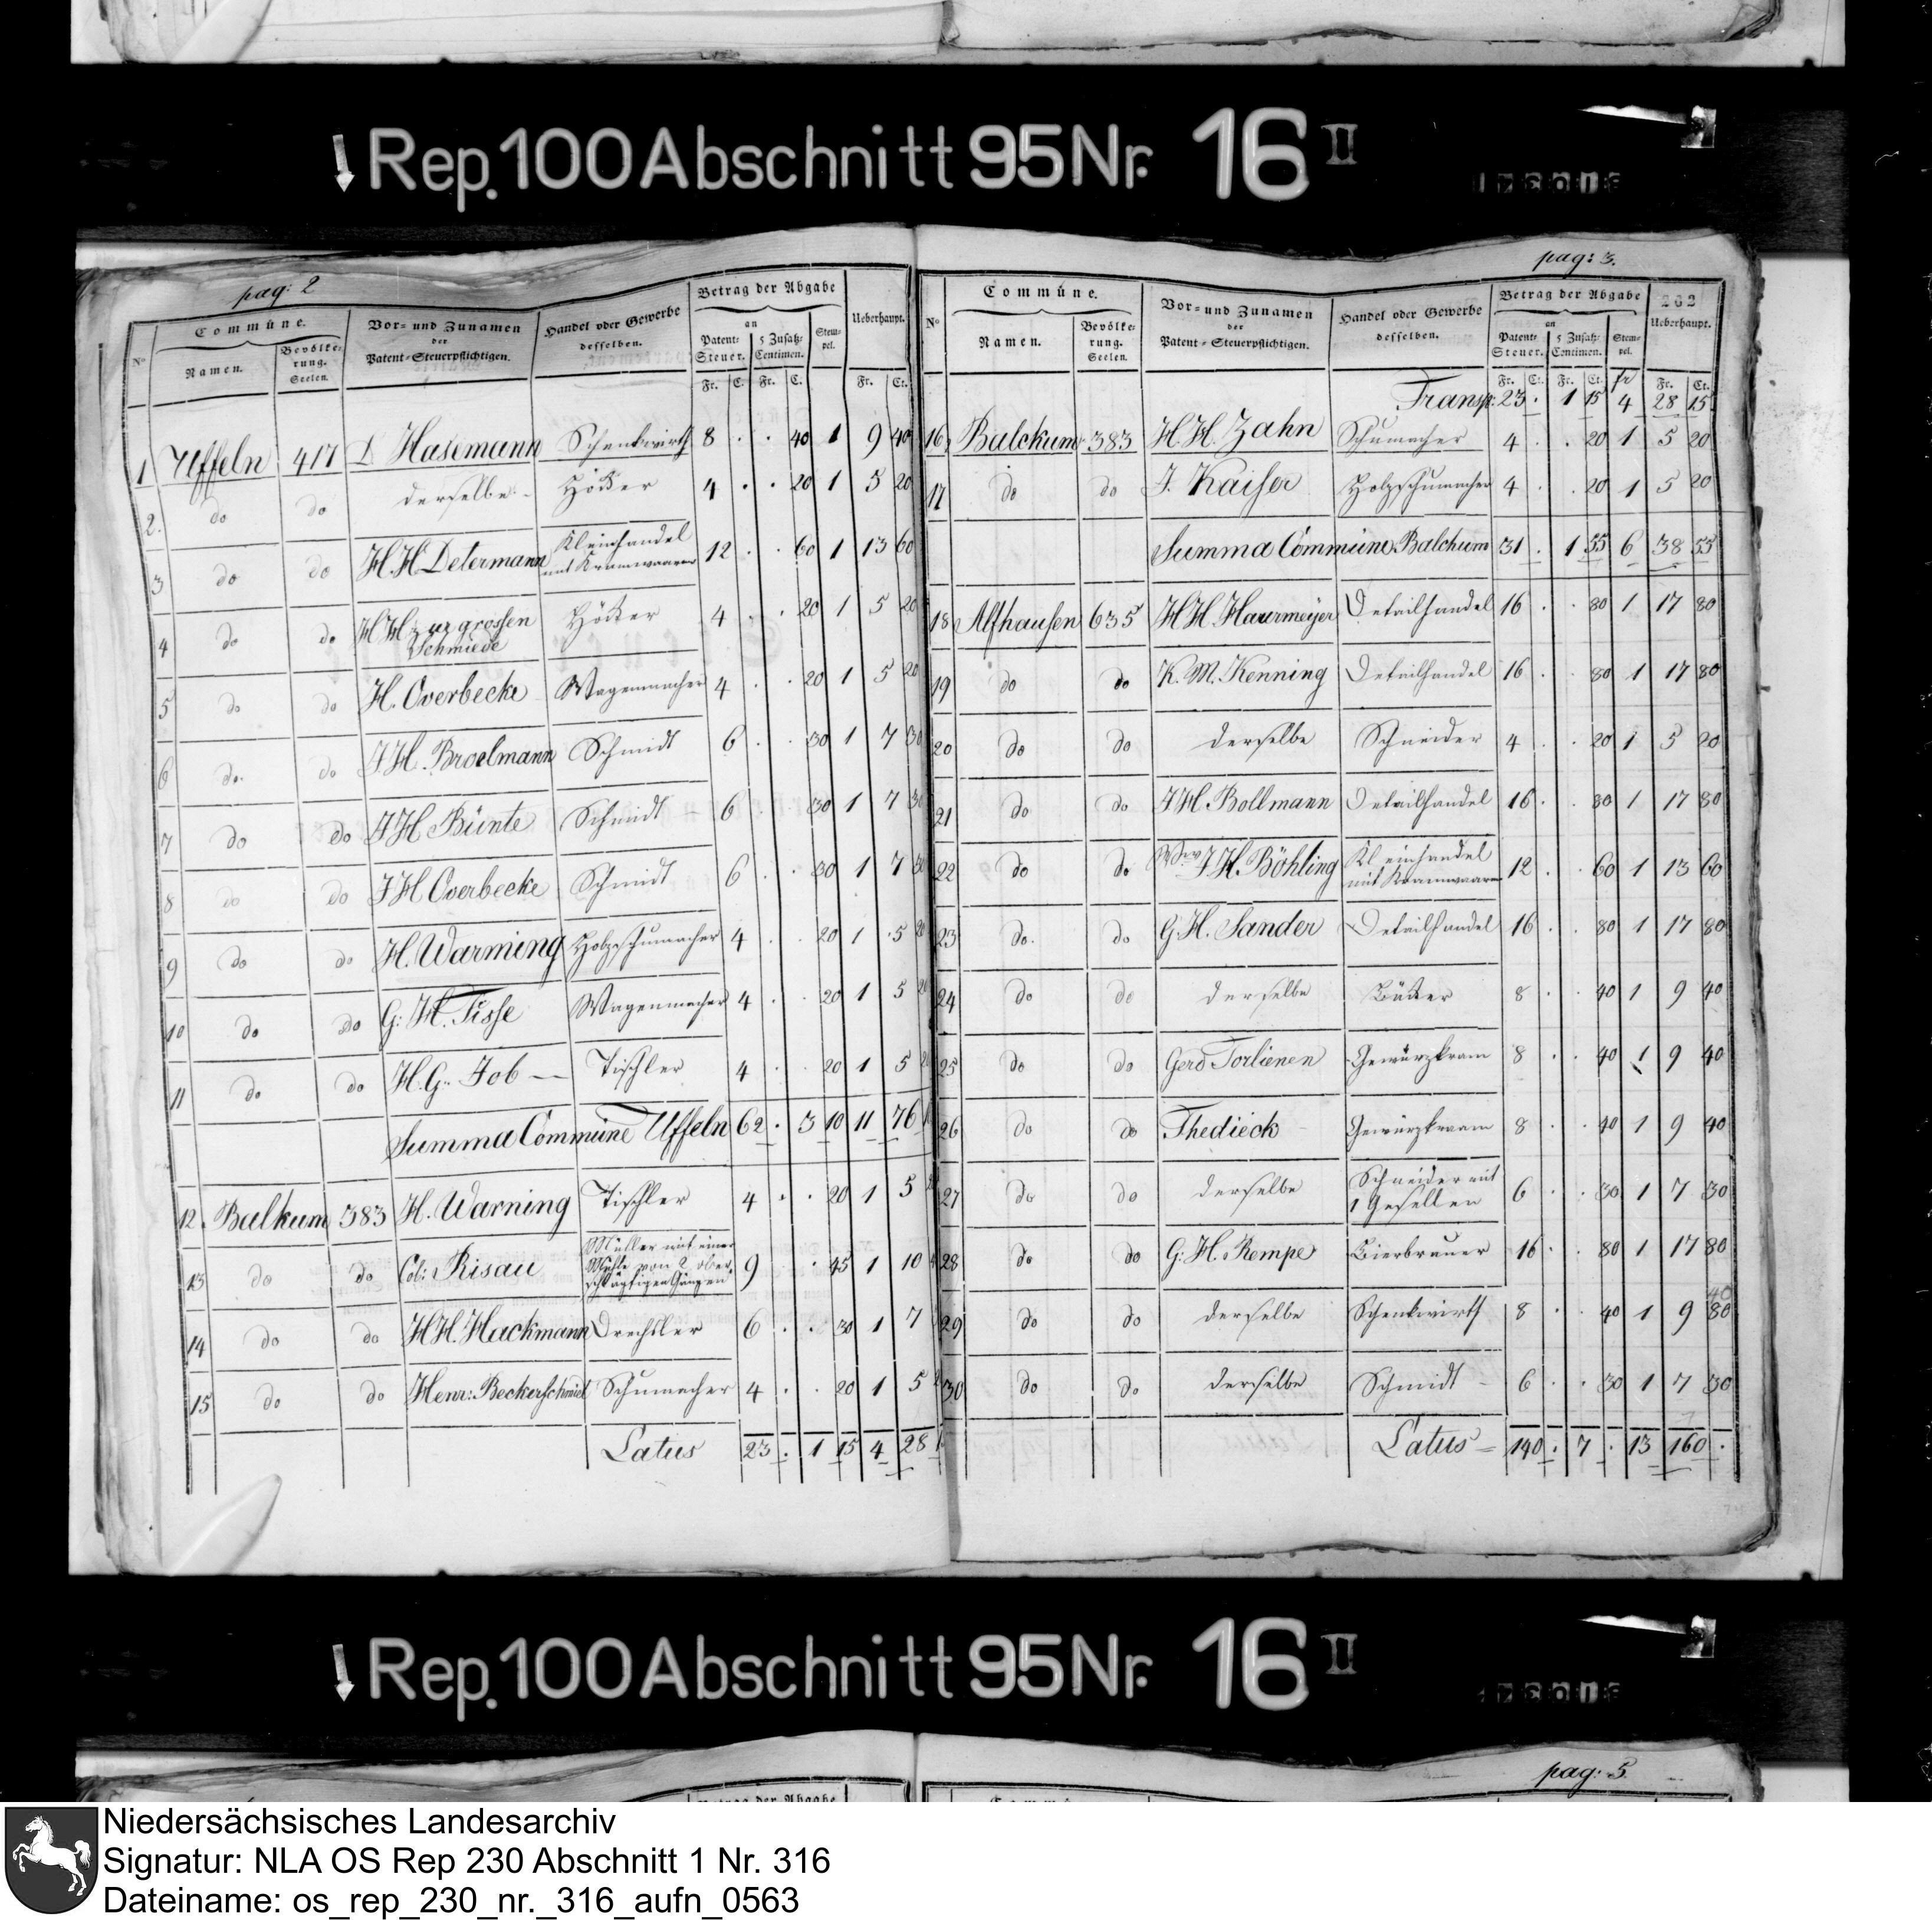 ↓ Rep. 100 Abschnitt 95 Nr. 16 II
pag: 2
No Commúne. Vor- und Zunamen der Patent-Steuerpflichtigen. Handel oder Gewerbe desselben. Betrag der Abgabe Ueberhaupt.
Namen. Bevölkerung. Seelen. an Patent-Steuer. 5 Zusatz-Centimen. Stempel.
Fr. C. Fr. C. Fr. Ct.
1 Uffeln 417 D Hasemann Schenkwirth 8 . . 40 1 9 40
2. do do derselbe Höker 4 . . 20 1 5 20
3 do do H. H Determann Kleinhandel mit Kramwaaren 12 . . 60 1 13 60
4 do do H H zur grossen Schmiede Höker 4 . . 20 1 5 20
5 do do H. Overbecke Wagenmacher 4 . . 20 1 5 20
6 do. do J. H. Broelmann Schmidt 6 . . 30 1 7 30
7 do do J H Bünte Schmidt 6 . . 30 1 7 30
8 do do J H Overbecke Schmidt 6 . . 30 1 7 30
9 do do H. Warming Holzschumacher 4 . . 20 1 5 20
10 do do G: H. Tisse Wagenmacher 4 . . 20 1 5 20
11 do do H. G. Job Tischler 4 . . 20 1 5 20
Summa Commüne Uffeln 62 . 3 10 11 76
12. Balkum 383 H. Warning Tischler 4 . . 20 1 5
13 do do Col: Risau Müller mit einer Mühle von 2 oberschlägtigen Gängen 9 . . 45 1 10
14 do do H H. Hackmann Drechsler 6 . . 30 1 7
15 do do Henr: Beckerschmidt Schumacher 4 . . 20 1 5
Latus 23 . 1 15 4 28
pag: 3.
262
No Commúne. Vor- und Zunamen der Patent-Steuerpflichtigen. Handel oder Gewerbe desselben. Betrag der Abgabe Ueberhaupt.
Namen. Bevölkerung. Seelen. an Patent-Steuer. 5 Zusatz-Centimen. Stempel.
Fr. Ct. Fr. Ct. fr Fr. Ct.
Transp. 23 . 1 15 4 28 15
16 Balckum 383 H H. Zahn Schumacher 4 . . 20 1 5 20
17 do do J. Kaiser Holzschumacher 4 . . 20 1 5 20
Summa Commüne Balchum 31 . 1 55 6 38 55
18 Alfhausen 635 H H. Haurmeyer Detailhandel 16 . . 80 1 17 80
19 do do K. M. Kenning Detailhandel 16 . . 80 1 17 80
20 do do derselbe Schneider 4 . . 20 1 5 20
21 do do J H. Bollmann Detailhandel 16 . . 80 1 17 80
22 do do Wwe J H. Böhling Kleinhandel mit Kramwaaren 12 . . 60 1 13 60
23 do. do G. H. Sander Detailhandel 16 . . 80 1 17 80
24 do do derselbe Bäker 8 . . 40 1 9 40
25 do do Gerd Torlienen Gewürzkram 8 . . 40 1 9 40
26 do do Thedieck Gewürzkraam 8 . . 40 1 9 40
27 do do derselbe Schneider mit 1 Gesellen 6 . . 30 1 7 30
28 do do G: H. Rempe Bierbrauer 16 . . 80 1 17 80
29 do do derselbe Schenkwirth 8 . . 40 1 9 80 40
30 do do derselbe Schmidt 6 . . 30 1 7 30
Latus 140 . 7 . 13 160 .
↓ Rep. 100 Abschnitt 95 Nr. 16 II
pag: 5
Betrag der Abgabe
Niedersächsisches Landesarchiv
Signatur: NLA OS Rep 230 Abschnitt 1 Nr. 316
Dateiname: os_rep_230_nr._316_aufn_0563